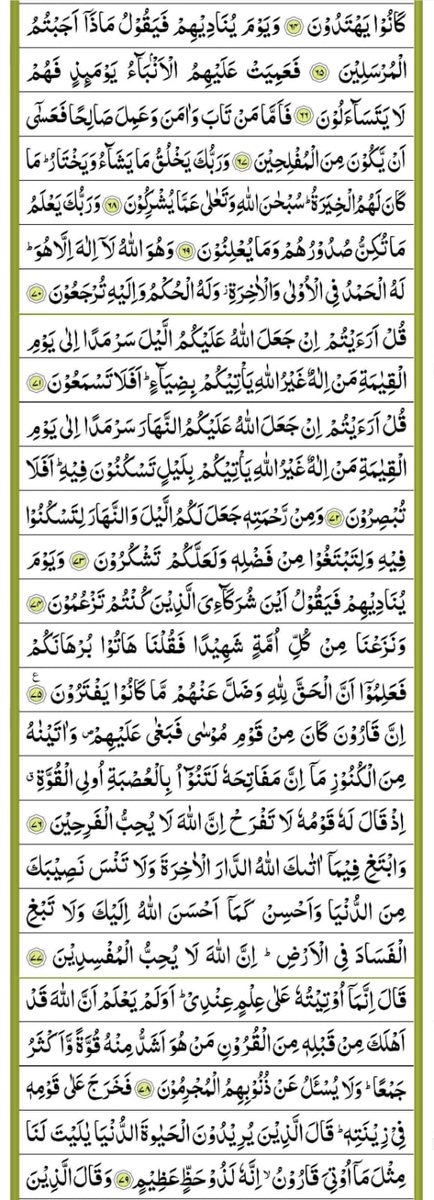 كَانُوْا يَهْتَدُوْنَ ﴿۶۴﴾ وَيَوْمَ يُنَادِيْهِمْ فَيَقُوْلُ مَاذَاۤ اَجَبْتُمُ
الْمُرْسَلِيْنَ ﴿۶۵﴾ فَعَمِيَتْ عَلَيْهِمُ الْاَنْۢبَآءُ يَوْمَىِٕذٍ فَهُمْ
لَا يَتَسَآءَلُوْنَ ﴿۶۶﴾ فَاَمَّا مَنْ تَابَ وَاٰمَنَ وَعَمِلَ صَالِحًا فَعَسٰۤى
اَنْ يَّكُوْنَ مِنَ الْمُفْلِحِيْنَ ﴿۶۷﴾ وَرَبُّكَ يَخْلُقُ مَا يَشَآءُ وَيَخْتَارُ ؕ مَا
كَانَ لَهُمُ الْخِيَرَةُ ؕ سُبْحٰنَ اللّٰهِ وَتَعٰلٰى عَمَّا يُشْرِكُوْنَ ﴿۶۸﴾ وَرَبُّكَ يَعْلَمُ
مَا تُكِنُّ صُدُوْرُهُمْ وَمَا يُعْلِنُوْنَ ﴿۶۹﴾ وَهُوَ اللّٰهُ لَاۤ اِلٰهَ اِلَّا هُوَ ؕ
لَهُ الْحَمْدُ فِى الْاُوْلٰى وَالْاٰخِرَةِ ؗ وَلَهُ الْحُكْمُ وَاِلَيْهِ تُرْجَعُوْنَ ﴿۷۰﴾
قُلْ اَرَءَيْتُمْ اِنْ جَعَلَ اللّٰهُ عَلَيْكُمُ الَّيْلَ سَرْمَدًا اِلٰى يَوْمِ
الْقِيٰمَةِ مَنْ اِلٰهٌ غَيْرُ اللّٰهِ يَاْتِيْكُمْ بِضِيَآءٍ ؕ اَفَلَا تَسْمَعُوْنَ ﴿۷۱﴾
قُلْ اَرَءَيْتُمْ اِنْ جَعَلَ اللّٰهُ عَلَيْكُمُ النَّهَارَ سَرْمَدًا اِلٰى يَوْمِ
الْقِيٰمَةِ مَنْ اِلٰهٌ غَيْرُ اللّٰهِ يَاْتِيْكُمْ بِلَيْلٍ تَسْكُنُوْنَ فِيْهِ ؕ اَفَلَا
تُبْصِرُوْنَ ﴿۷۲﴾ وَمِنْ رَّحْمَتِهٖ جَعَلَ لَكُمُ الَّيْلَ وَالنَّهَارَ لِتَسْكُنُوْا
فِيْهِ وَلِتَبْتَغُوْا مِنْ فَضْلِهٖ وَلَعَلَّكُمْ تَشْكُرُوْنَ ﴿۷۳﴾ وَيَوْمَ
يُنَادِيْهِمْ فَيَقُوْلُ اَيْنَ شُرَكَآءِىَ الَّذِيْنَ كُنْتُمْ تَزْعُمُوْنَ ﴿۷۴﴾
وَنَزَعْنَا مِنْ كُلِّ اُمَّةٍ شَهِيْدًا فَقُلْنَا هَاتُوْا بُرْهَانَكُمْ
فَعَلِمُوْۤا اَنَّ الْحَقَّ لِلّٰهِ وَضَلَّ عَنْهُمْ مَّا كَانُوْا يَفْتَرُوْنَ ﴿۷۵﴾ ع
اِنَّ قَارُوْنَ كَانَ مِنْ قَوْمِ مُوْسٰى فَبَغٰى عَلَيْهِمْ ۪ وَاٰتَيْنٰهُ
مِنَ الْكُنُوْزِ مَاۤ اِنَّ مَفَاتِحَهٗ لَتَنُوْٓاُ بِالْعُصْبَةِ اُولِى الْقُوَّةِ ۗ
اِذْ قَالَ لَهٗ قَوْمُهٗ لَا تَفْرَحْ اِنَّ اللّٰهَ لَا يُحِبُّ الْفَرِحِيْنَ ﴿۷۶﴾
وَابْتَغِ فِيْمَاۤ اٰتٰىكَ اللّٰهُ الدَّارَ الْاٰخِرَةَ وَلَا تَنْسَ نَصِيْبَكَ
مِنَ الدُّنْيَا وَاَحْسِنْ كَمَاۤ اَحْسَنَ اللّٰهُ اِلَيْكَ وَلَا تَبْغِ
الْفَسَادَ فِى الْاَرْضِ ؕ اِنَّ اللّٰهَ لَا يُحِبُّ الْمُفْسِدِيْنَ ﴿۷۷﴾
قَالَ اِنَّمَاۤ اُوْتِيْتُهٗ عَلٰى عِلْمٍ عِنْدِىْ ؕ اَوَلَمْ يَعْلَمْ اَنَّ اللّٰهَ قَدْ
اَهْلَكَ مِنْ قَبْلِهٖ مِنَ الْقُرُوْنِ مَنْ هُوَ اَشَدُّ مِنْهُ قُوَّةً وَّاَكْثَرُ
جَمْعًا ؕ وَلَا يُسْـَٔلُ عَنْ ذُنُوْبِهِمُ الْمُجْرِمُوْنَ ﴿۷۸﴾ فَخَرَجَ عَلٰى قَوْمِهٖ
فِىْ زِيْنَتِهٖ ؕ قَالَ الَّذِيْنَ يُرِيْدُوْنَ الْحَيٰوةَ الدُّنْيَا يٰلَيْتَ لَنَا
مِثْلَ مَاۤ اُوْتِىَ قَارُوْنُ ۙ اِنَّهٗ لَذُوْ حَظٍّ عَظِيْمٍ ﴿۷۹﴾ وَقَالَ الَّذِيْنَ